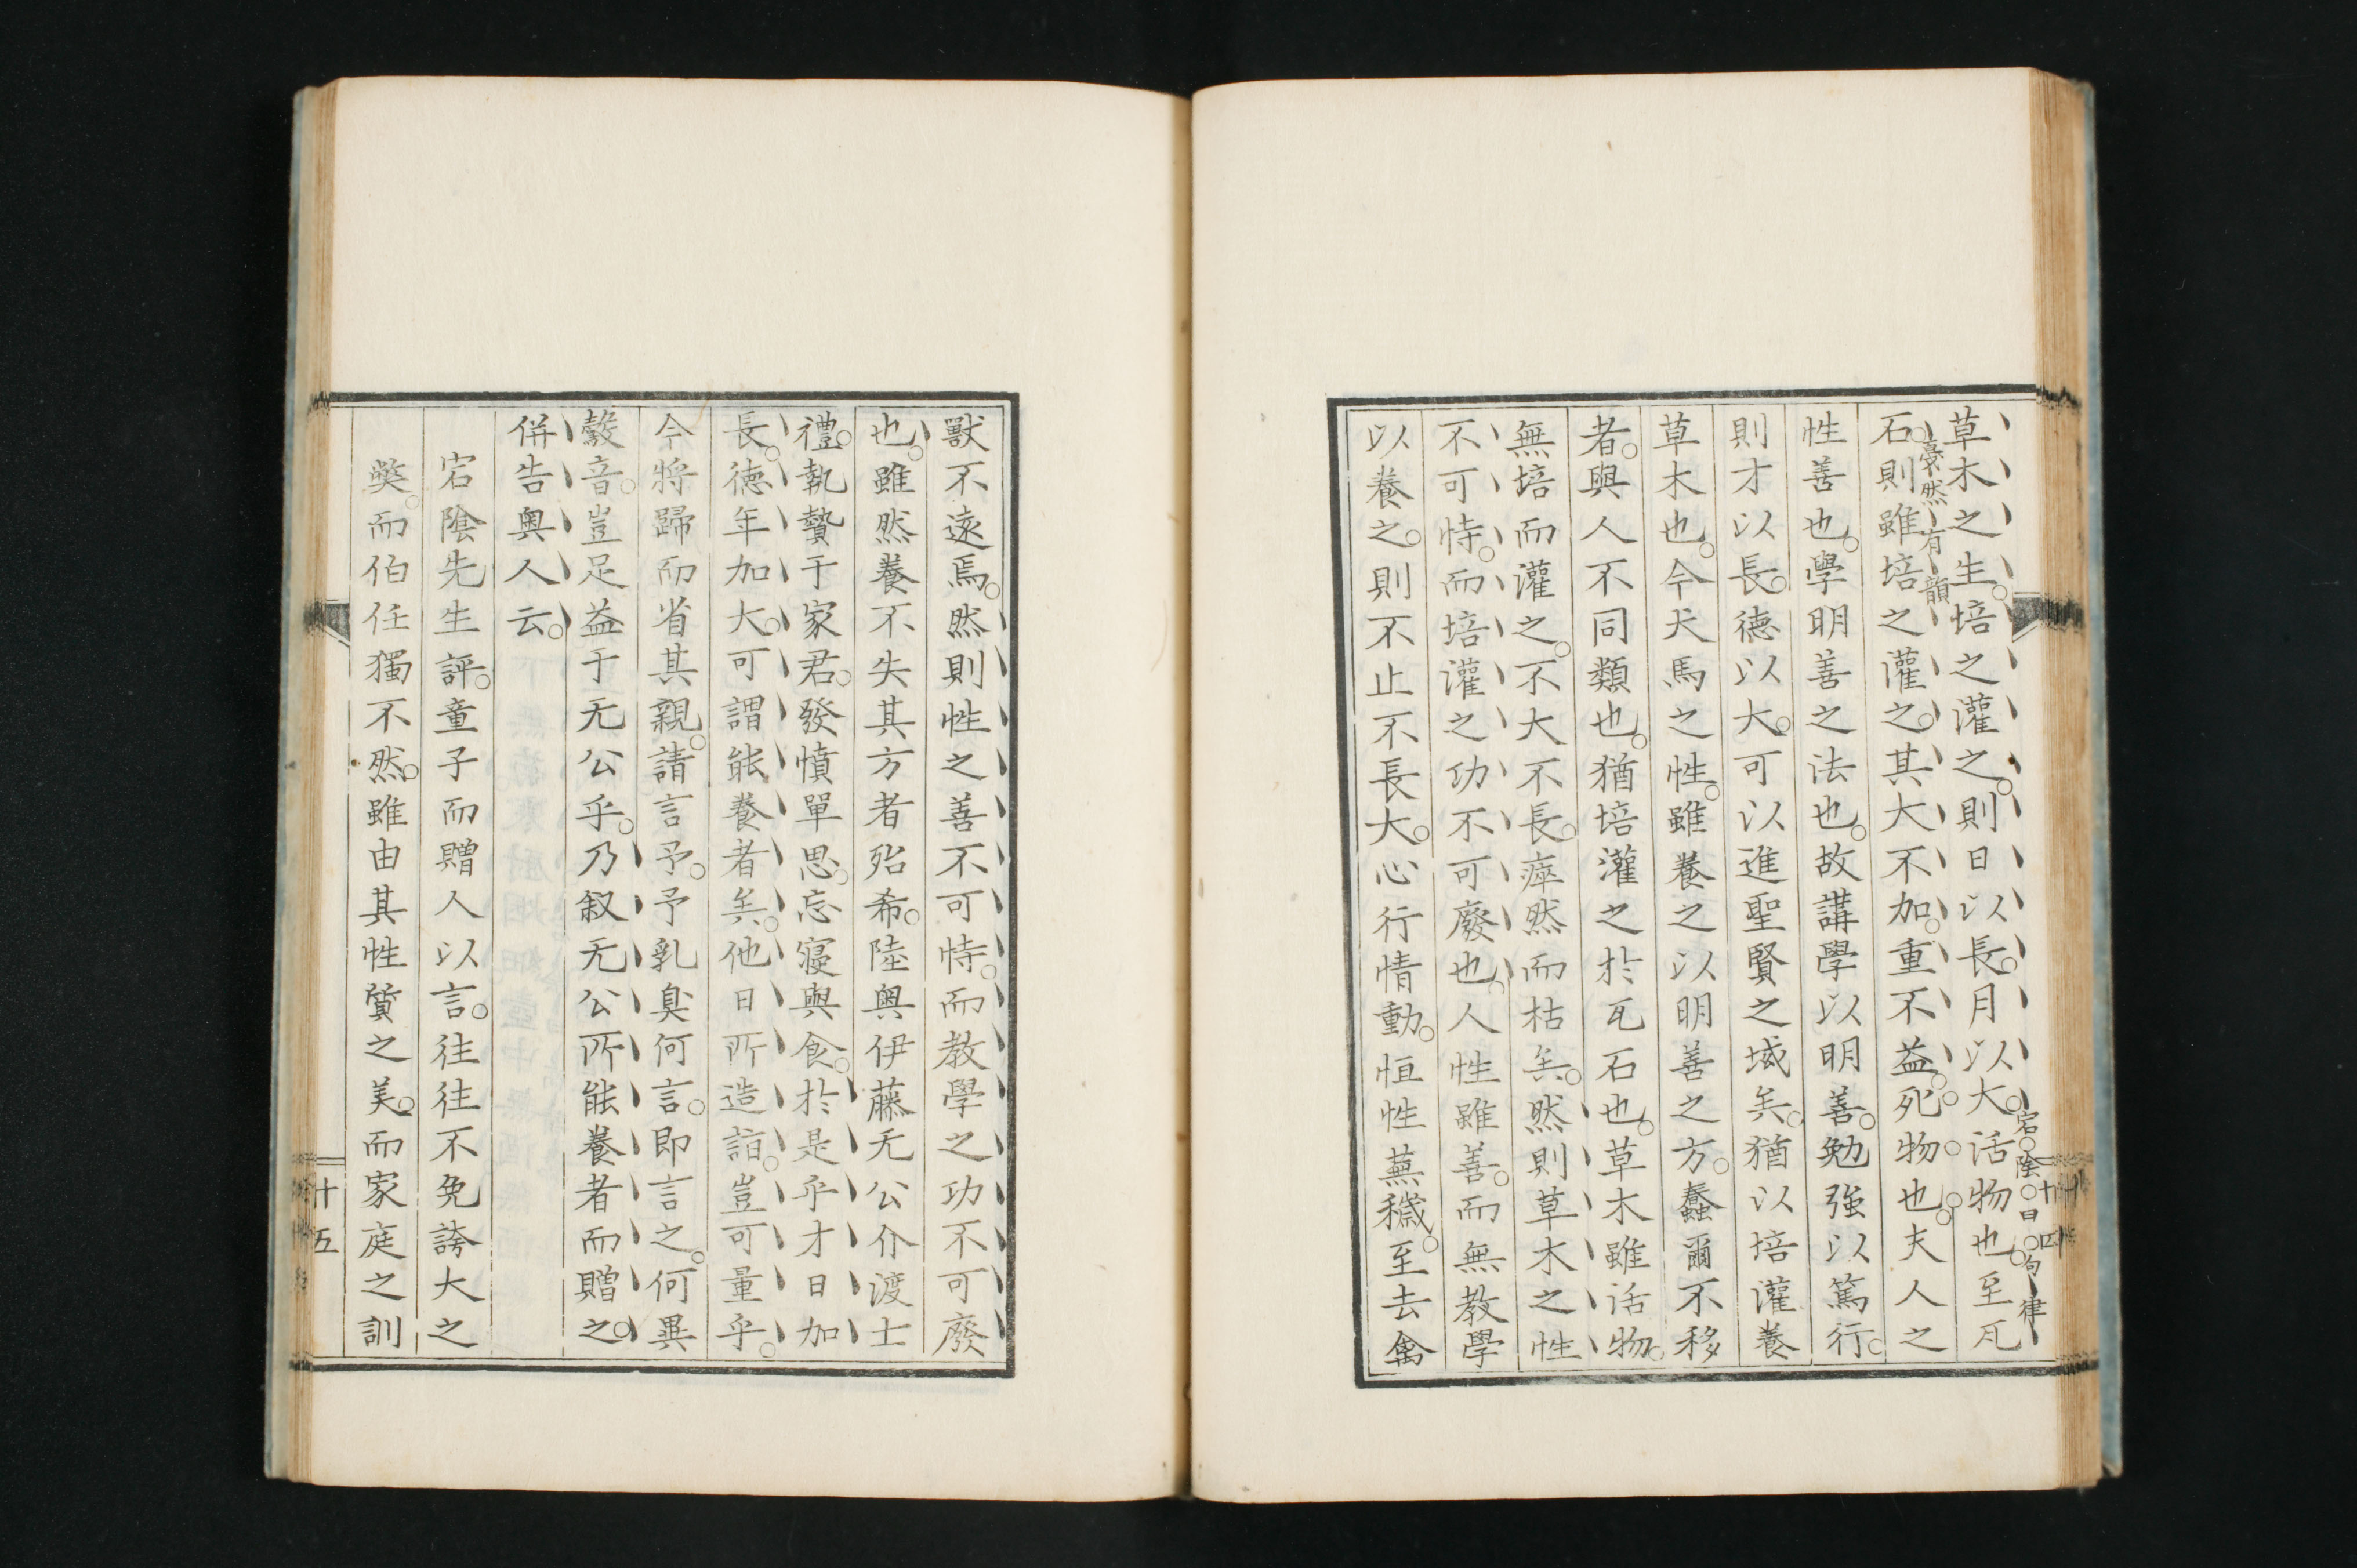 草木之生。培之灌之。則日以長。月以大。活物也。至瓦
宕陰曰句律
戞然有韻
石。則雖培之灌之。其大不加。重不益。死物也。夫人之
性善也。學明善之法也。故講學以明善。勉強以篤行。
則才以長。德以大。可以進聖賢之域矣。猶以培灌養
草木也。今犬馬之性。雖養之以明善之方。蠢爾不移
者。與人不同類也。猶培灌之於瓦石也。草木雖活物。
無培而灌之。不大不長。瘁然而枯矣。然則草木之性
不可恃。而培灌之功不可廢也。人性雖善。而無教學
以養之。則不止不長大。心行情動。恒性蕪穢。至去禽
十四
獸不遠焉。然則性之善不可恃。而教學之功不可廢
也。雖然養不失其方者殆希。陸奧伊藤无公介渡士
禮。執贄于家君。發憤單思。忘寢與食。於是乎才日加
長。德年加大。可謂能養者矣。他日所造詣。豈可量乎。
今將歸而省其親。請言予。予乳臭何言。即言之。何異
鷇音。豈足益于无公乎。乃叙无公所能養者而贈之。
併告奧人云。
宕陰先生評。童子而贈人以言。往往不免誇大之
獘。而伯任獨不然。雖由其性質之美。而家庭之訓
十五